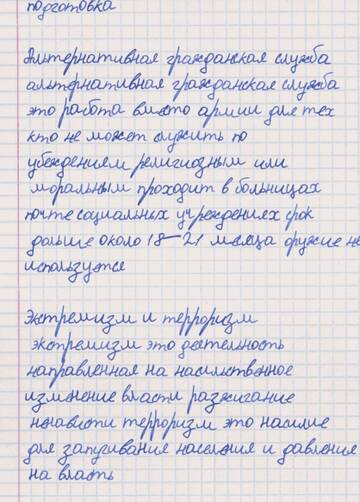 подготовка
Альтернативная гражданская служба
альтернативная гражданская служба
это работа вместо армии для тех
кто не может служить по
убеждениям религиозным или
моральным проходит в больницах
почте социальных учреждениях срок
дольше около 18-21 месяца оружие не
используется
Экстремизм и терроризм
экстремизм это деятельность
направленная на насильственное
изменение власти разжигание
ненависти терроризм это насилие
для запугивания населения и давления
на власть